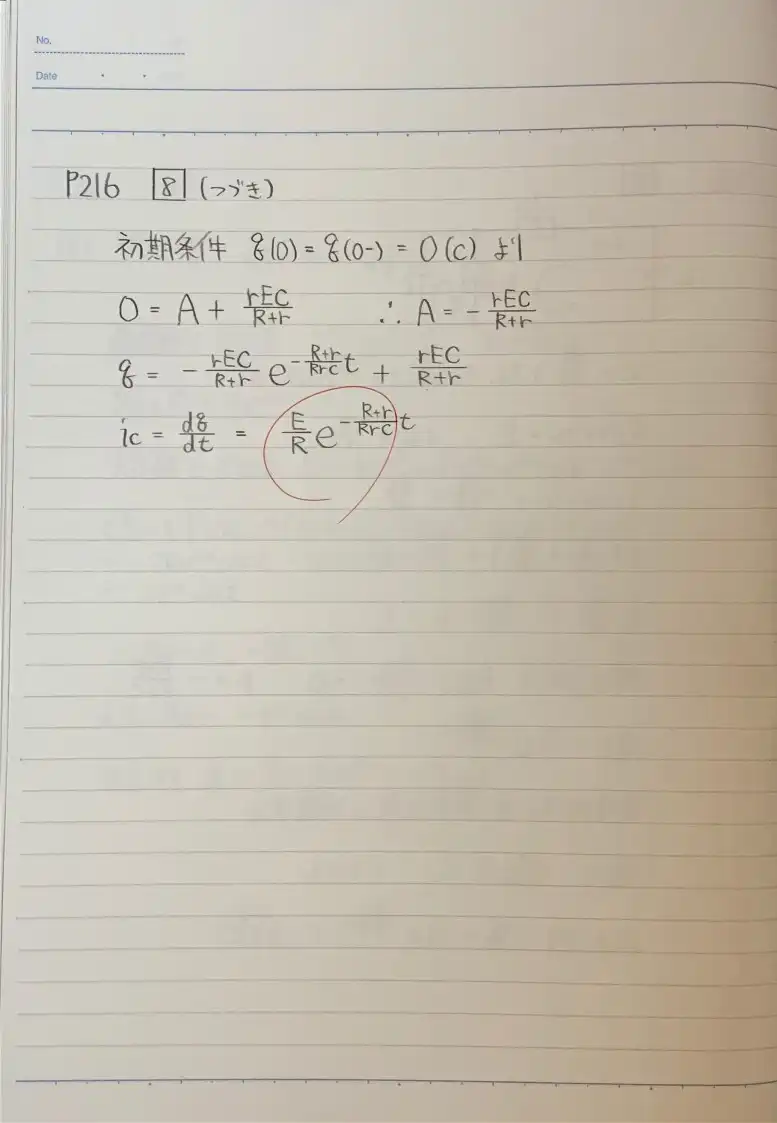 No.
Date
P216 8 (つづき)
初期条件 q(0) = q(0-) = 0 (C) より
0 = A + rEC/R+r ∴ A = - rEC/R+r
q = - rEC/R+r e^-R+r/RrC t + rEC/R+r
ic = dq/dt = E/R e^-R+r/RrC t